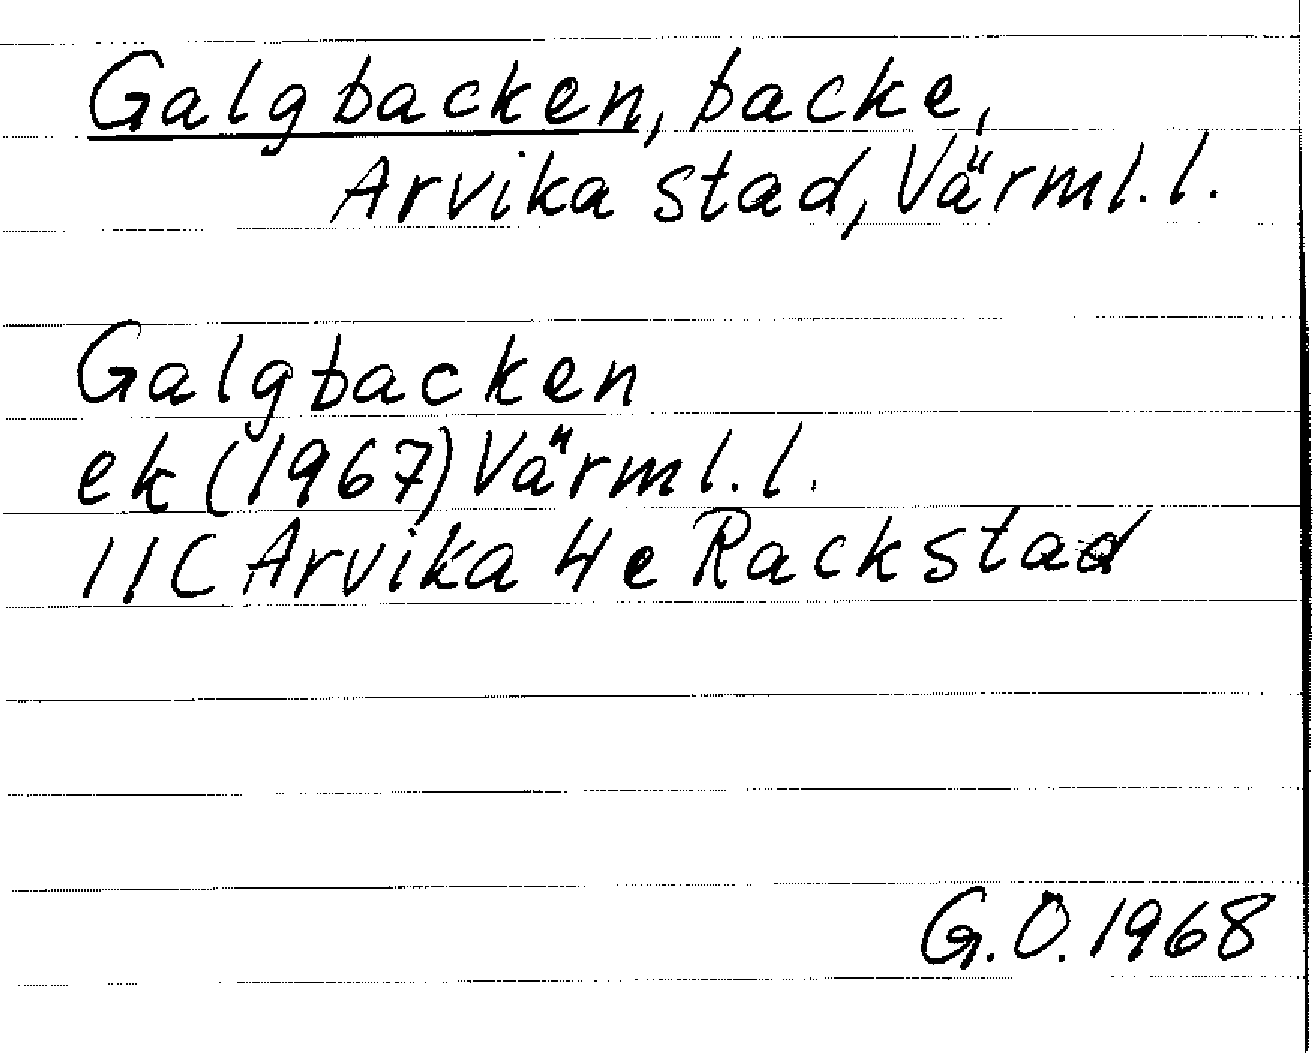 Galgbacken, backe,
Arvika stad, Värml. l.
Galgbacken
ek (1967) Värml. l.
11C Arvika 4e Rackstad
G.O. 1968